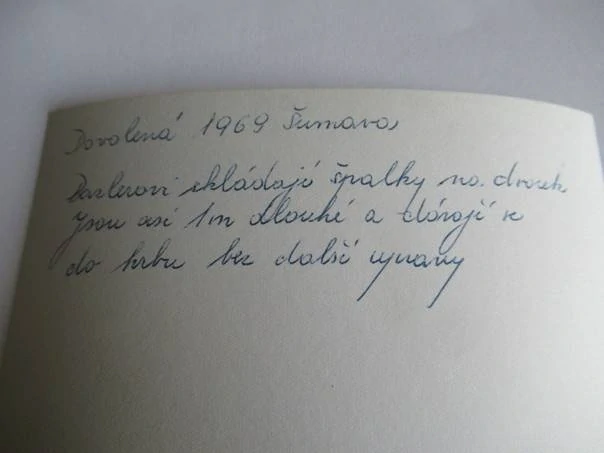 Dovolená 1969 Šumava
skládají špalky na dvorek
Jsou asi 1m dlouhé a dávají se
do krbu bez další úpravy